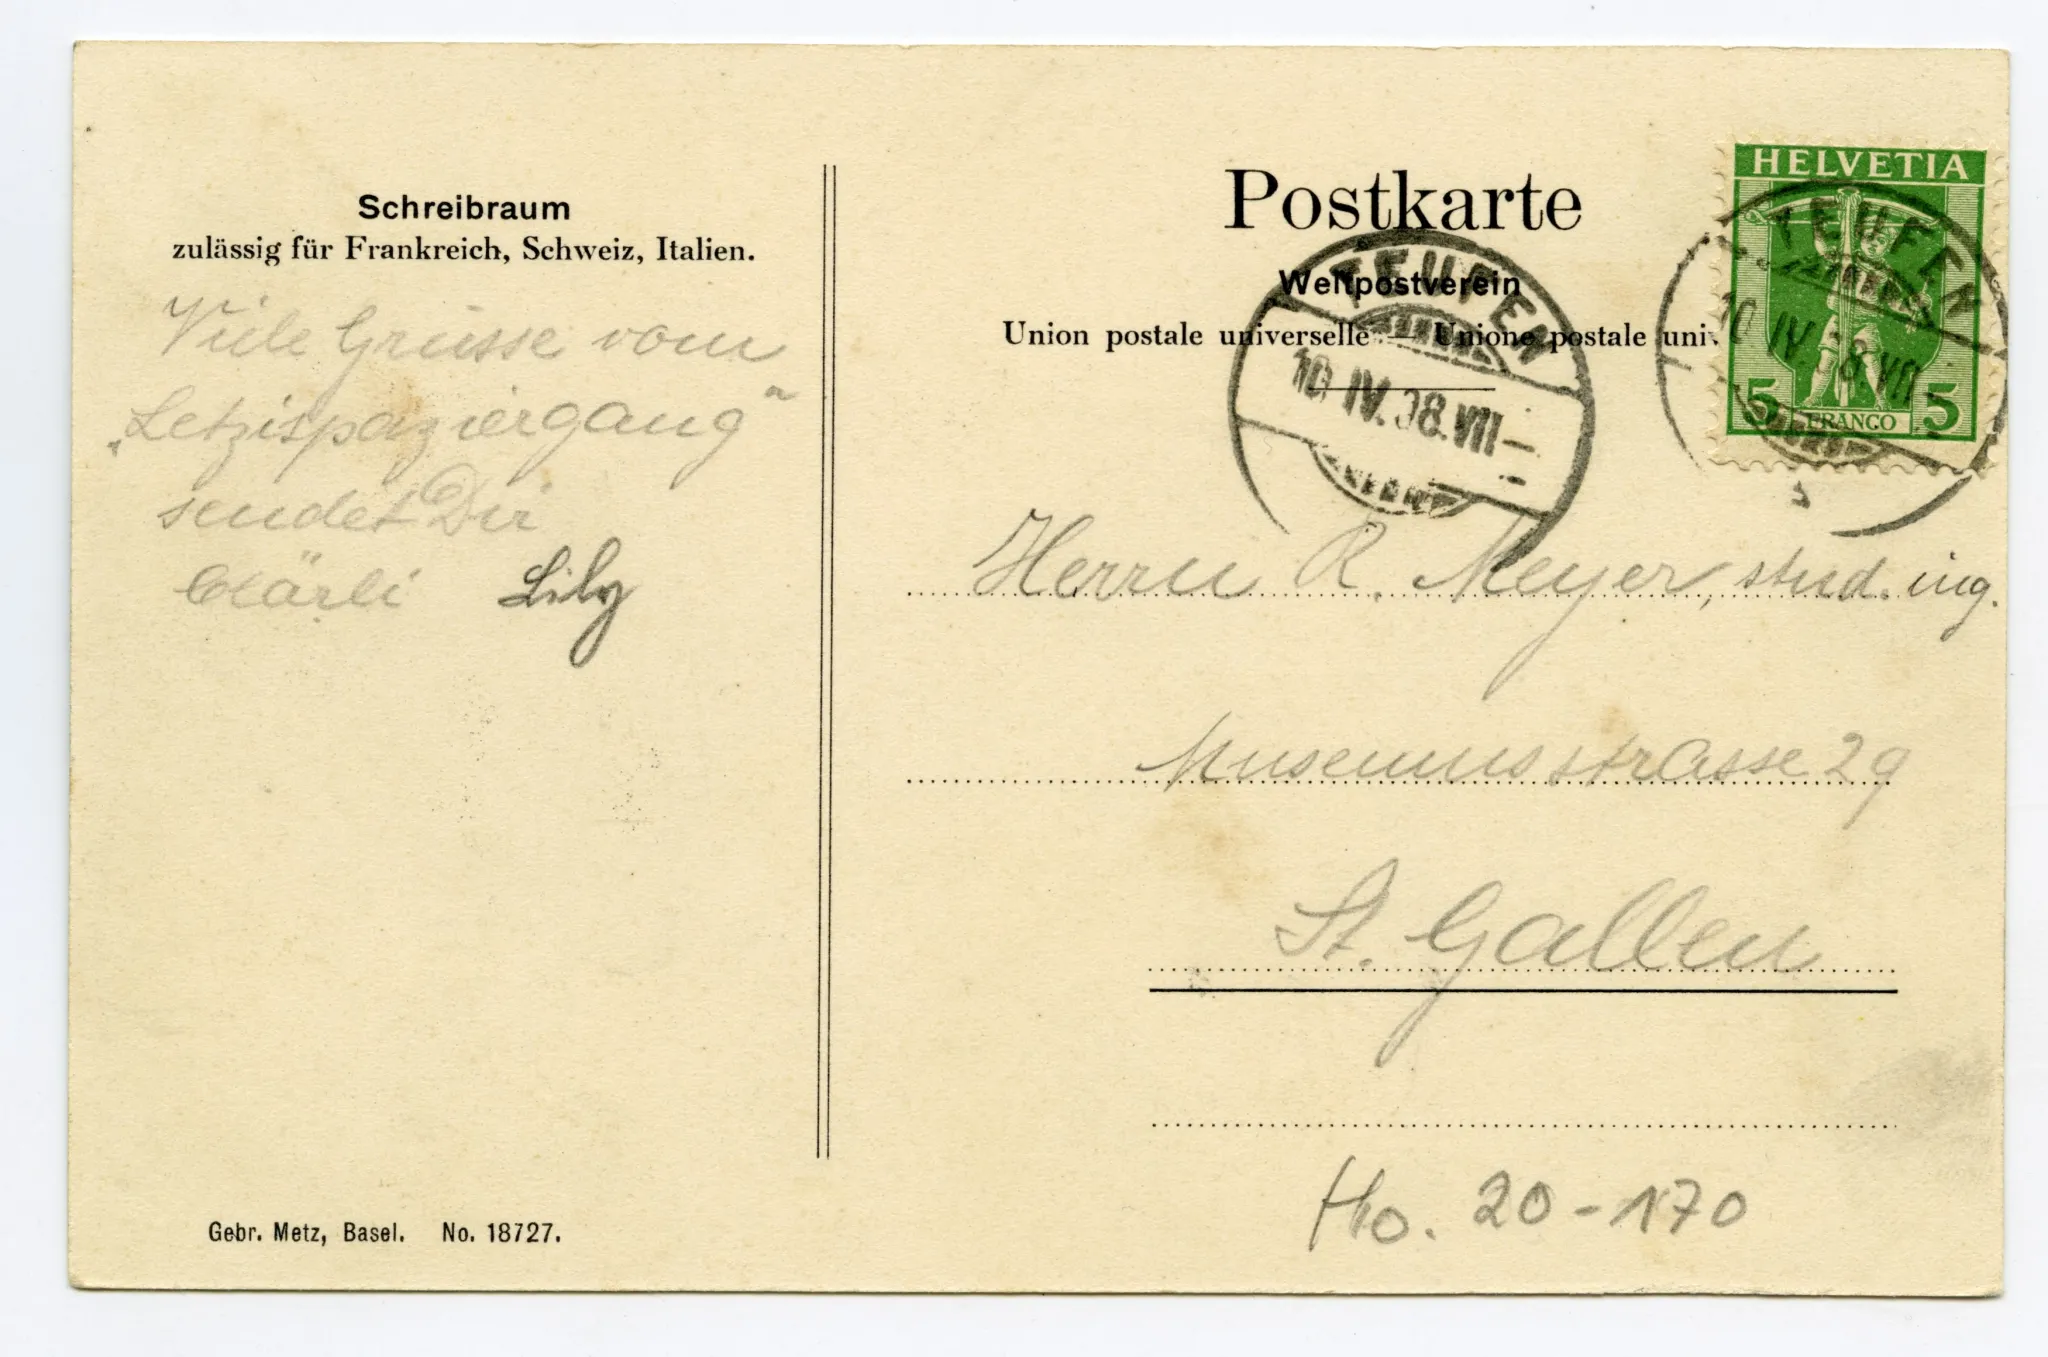 Schreibraum
zulässig für Frankreich, Schweiz, Italien.
Viele Grüsse vom
„Letzispaziergang"
sendet Dir
Klärli Lily
Gebr. Metz, Basel. No. 18727.
Postkarte
Weltpostverein
Union postale universelle — Unione postale univ.
HELVETIA
5 FRANCO 5
TEUFEN
10 IV 08.VII-
TEUFEN
10 IV.08.VII-
Herrn R. Meyer, stud. ing.
Museumsstrasse 29
St. Gallen
Ho. 20-170